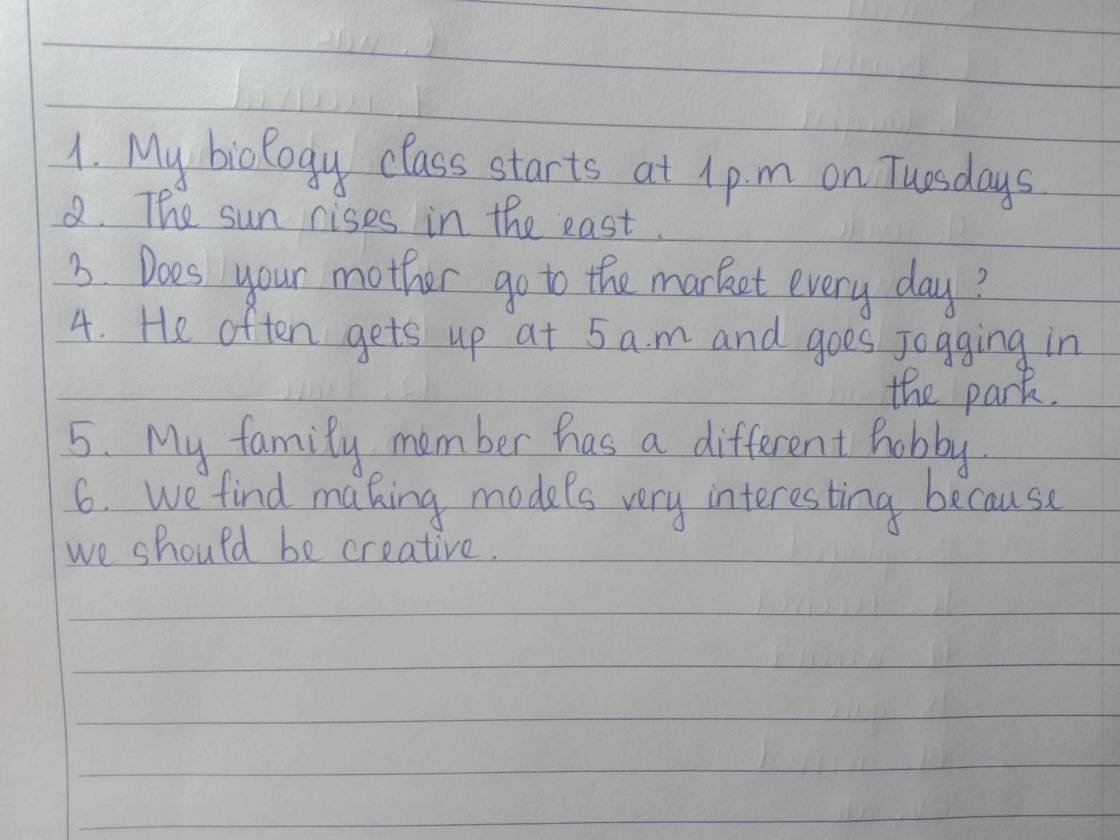 1. My biology class starts at 1 p.m on Tuesdays.
2. The sun rises in the east.
3. Does your mother go to the market every day?
4. He often gets up at 5 a.m and goes jogging in
the park.
5. My family member has a different hobby.
6. We find making models very interesting because
we should be creative.